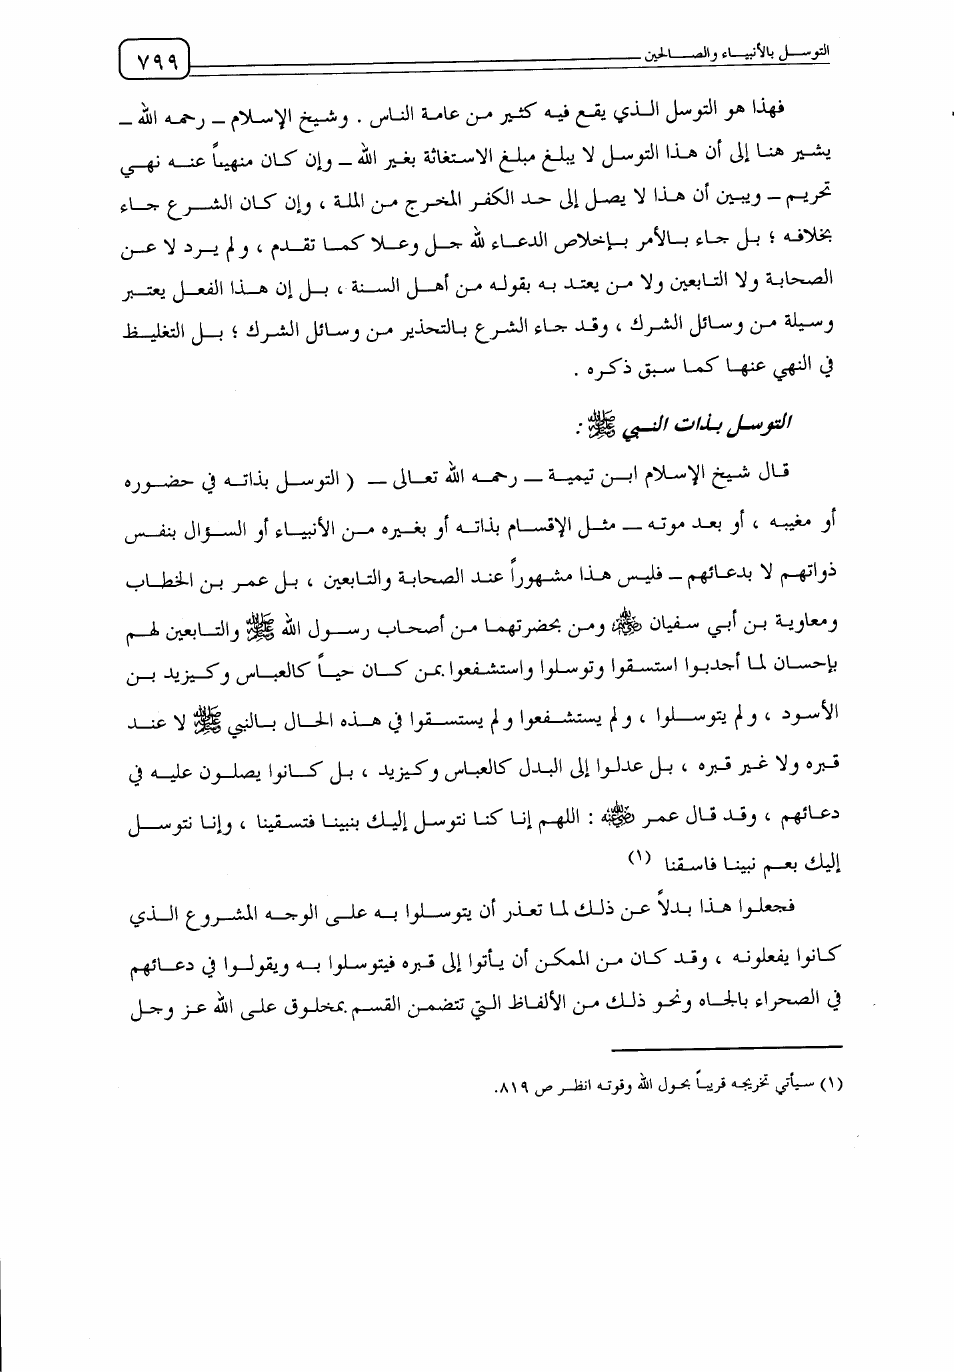 التوسل بالأنبياء والصالحين
٧٩٩
فهذا هو التوسل الذي يقع فيه كثير من عامة الناس . وشيخ الإسلام – رحمه الله –
يشير هنا إلى أن هذا التوسل لا يبلغ مبلغ الاستغاثة بغير الله – وإن كان منهياً عنه نهي
تحريم – ويبين أن هذا لا يصل إلى حد الكفر المخرج من الملة ، وإن كان الشرع جاء
بخلافه ؛ بل جاء بالأمر بإخلاص الدعاء لله جل وعلا كما تقدم ، ولم يرد لا عن
الصحابة ولا التابعين ولا من يعتد به بقوله من أهل السنة ، بل إن هذا الفعل يعتبر
وسيلة من وسائل الشرك ، وقد جاء الشرع بالتحذير من وسائل الشرك ؛ بل التغليظ
في النهي عنها كما سبق ذكره .
التوسل بذات النبي ﷺ :
قال شيخ الإسلام ابن تيمية – رحمه الله تعالى – ( التوسل بذاته في حضوره
أو مغيبه ، أو بعد موته – مثل الإقسام بذاته أو بغيره من الأنبياء أو السؤال بنفس
ذواتهم لا بدعائهم – فليس هذا مشهوراً عند الصحابة والتابعين ، بل عمر بن الخطاب
ومعاوية بن أبي سفيان ﷺ ومن بحضرتهما من أصحاب رسول الله ﷺ والتابعين لهم
بإحسان لما أجدبوا استسقوا وتوسلوا واستشفعوا بمن كان حياً كالعباس وكيزيد بن
الأسود ، ولم يتوسلوا ، ولم يستشفعوا ولم يستسقوا في هذه الحال بالنبي ﷺ لا عند
قبره ولا غير قبره ، بل عدلوا إلى البدل كالعباس وكيزيد ، بل كانوا يصلون عليه في
دعائهم ، وقد قال عمر رضي الله عنه : اللهم إنا كنا نتوسل إليك بنبينا فتسقينا ، وإنا نتوسل
إليك بعم نبينا فاسقنا (١)
فجعلوا هذا بدلاً عن ذلك لما تعذر أن يتوسلوا به على الوجه المشروع الذي
كانوا يفعلونه ، وقد كان من الممكن أن يأتوا إلى قبره فيتوسلوا به ويقولوا في دعائهم
في الصحراء بالجاه ونحو ذلك من الألفاظ التي تتضمن القسم بمخلوق على الله عز وجل
(١) سيأتي تخريجه قريباً بحول الله وقوته انظر ص ٨١٩.